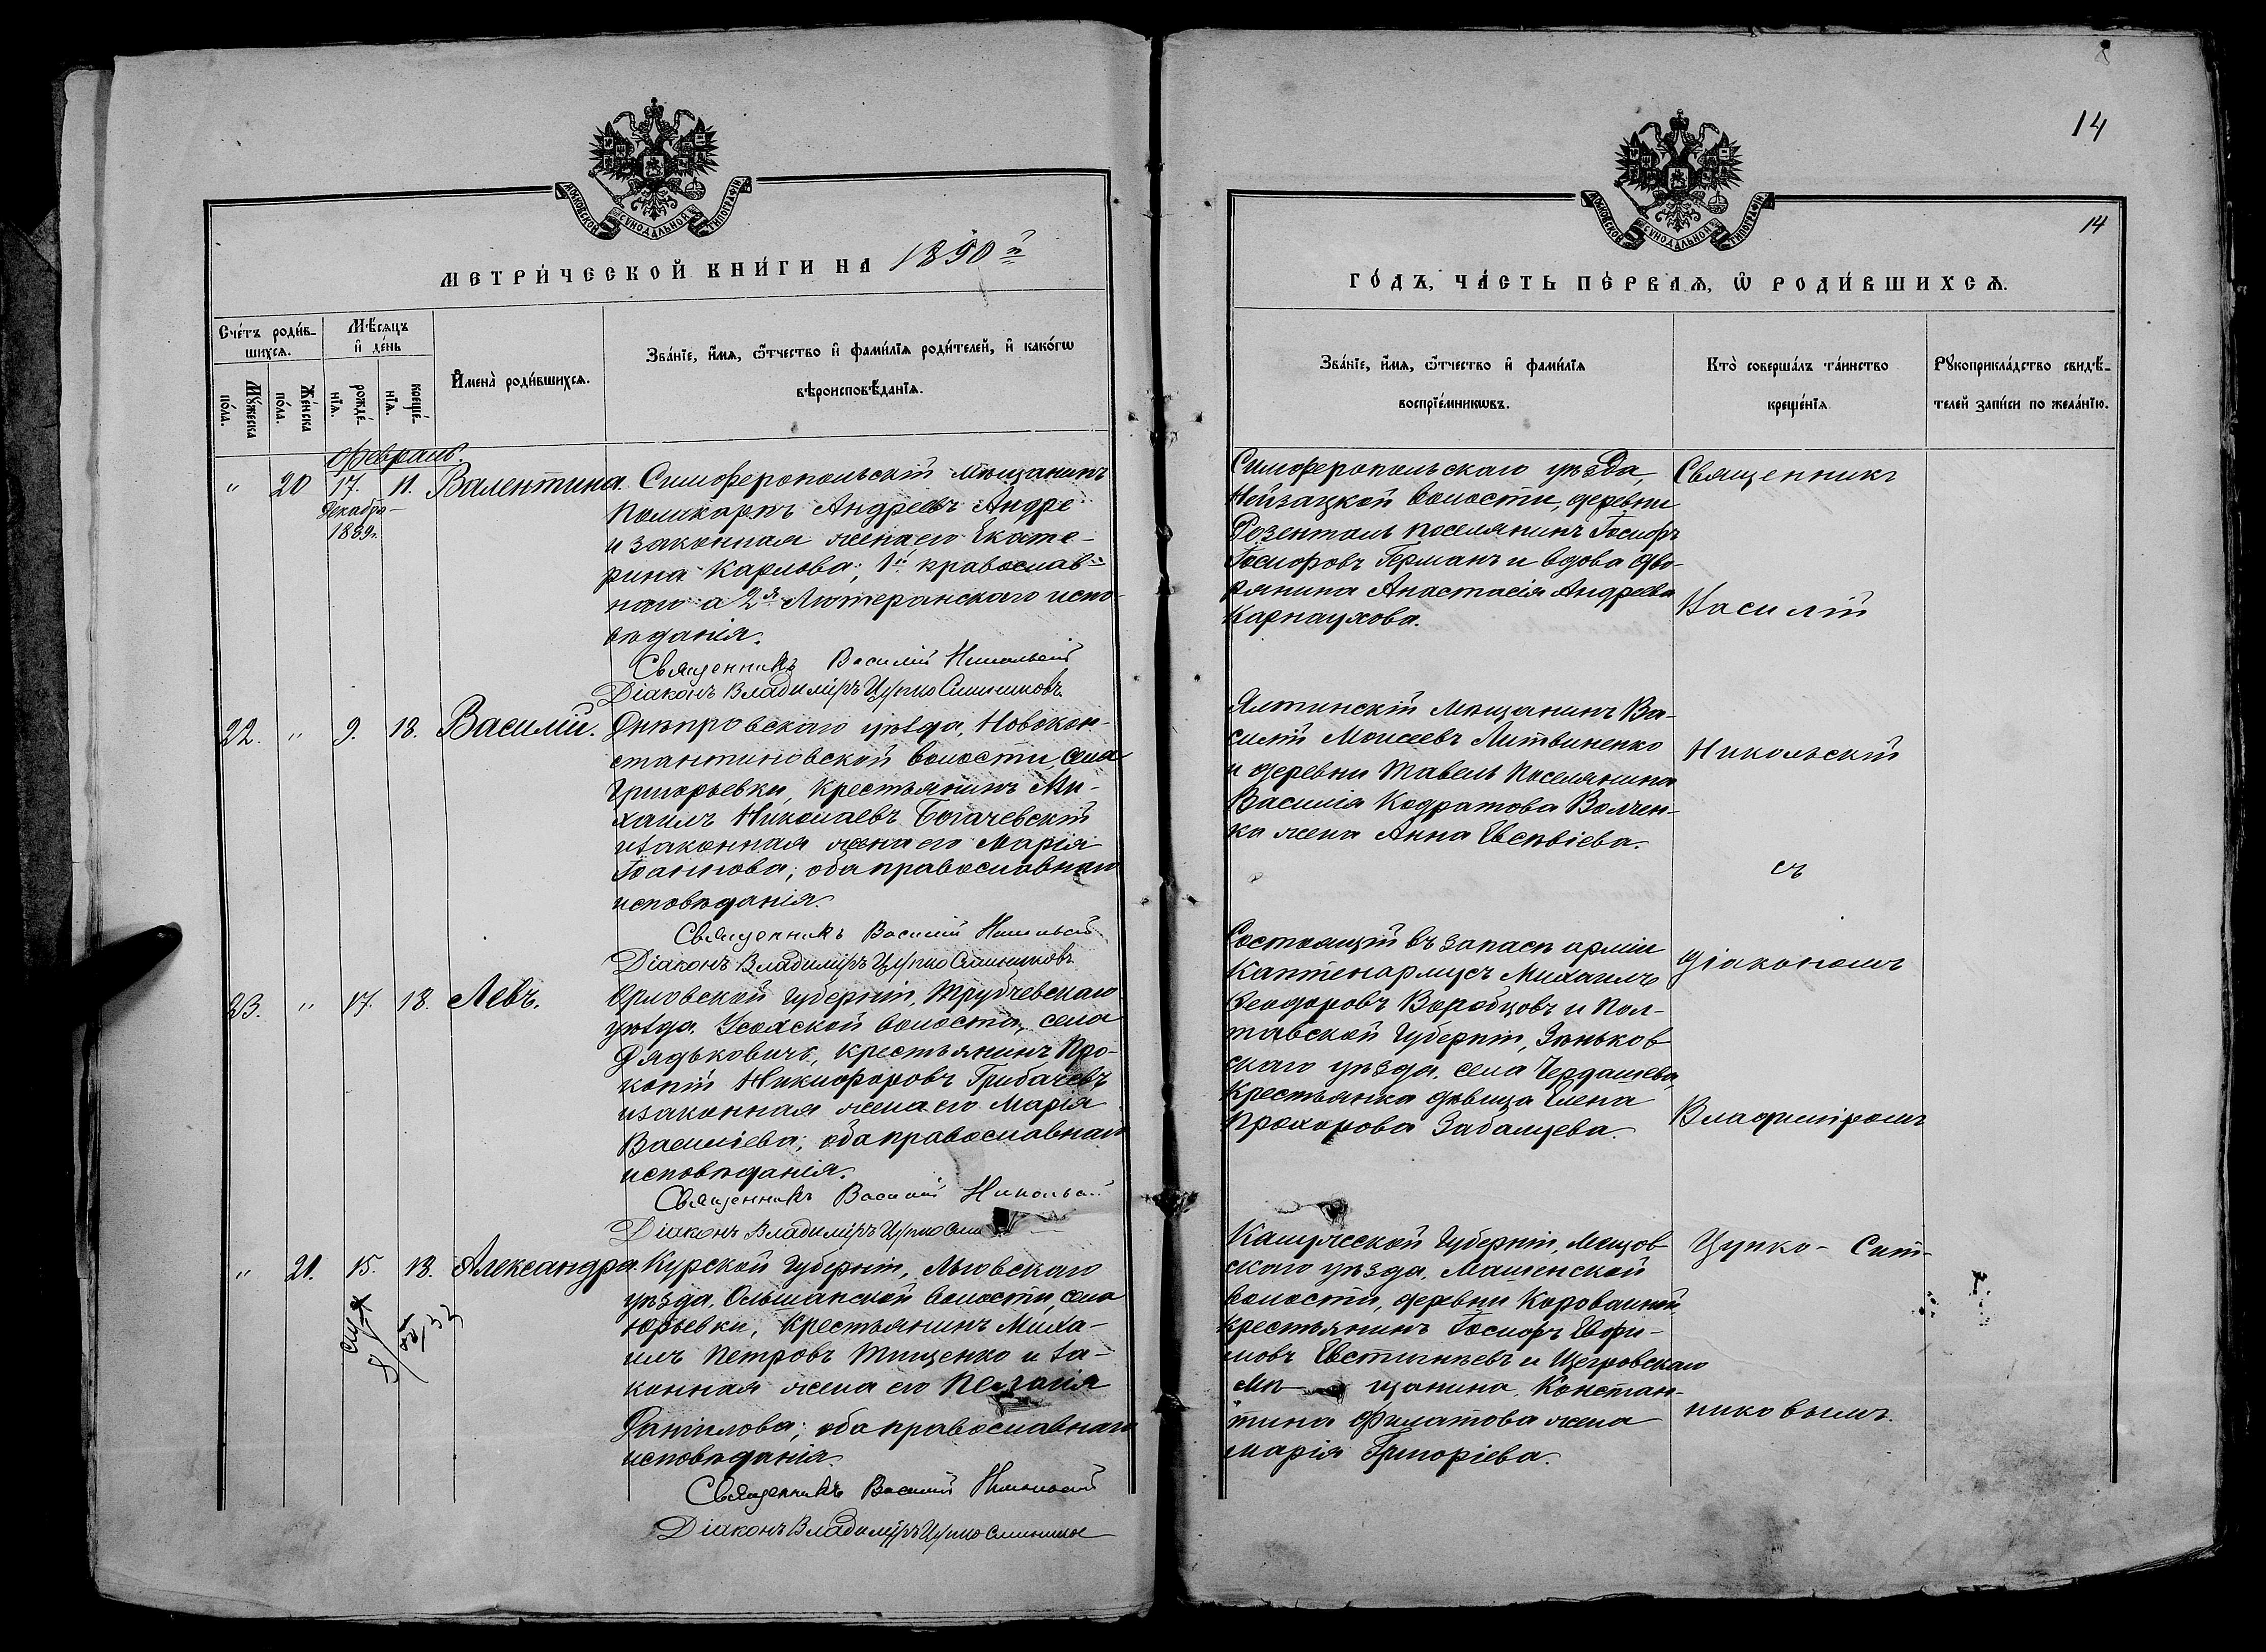 МОСКОВСКОЙ СѴНОДАЛЬНОЙ ТИПОГРАФІИ
МЕТРИ́ЧЕСКОЙ КНИ́ГИ НА 1890й
Сче́тъ роди́в-
шихсѧ.
Мѣ́сѧцъ
и҆ де́нь
И҆мена̀ роди́вшихсѧ.
Зва́нїе, и҆́мѧ, ѻ҆́тчество и҆ фами́лїѧ роди́телей, и҆ како́гѡ
вѣроисповѣ́данїѧ.
Мꙋ́жеска
по́ла.
Же́нска
по́ла.
рожде́-
нїѧ.
креще́-
нїѧ.
Февраль.
" 20 17. 11. Валентина. Симферопольскій мѣщанинъ
Декабря
1889г.
Поликарпъ Андреевъ Андре
и законная жена его Екате-
рина Карлова; 1й православ-
наго а 2я Лютеранскаго испо-
вѣданія.
Священникъ Василій Никольскій
Діаконъ Владиміръ Цупко Ситниковъ.
22. " 9. 18. Василій. Днѣпровскаго уѣзда, Новокон-
стантиновской волости, села
Григорьевки, крестьянинъ Ми-
хаилъ Николаевъ Богачевскій
и законная жена его Марія
Іоаннова; оба православнаго
исповѣданія.
Священникъ Василій Никольскій
Діаконъ Владиміръ Цупко Ситниковъ
23. " 17. 18. Левъ. Орловской Губерніи, Трубчевскаго
уѣзда, Усожской волости, села
Дядьковичъ, крестьянинъ Про-
копій Никифоровъ Грибачевъ
и законная жена его Марія
Василіева; оба православнаго
исповѣданія.
Священникъ Василій Никольскій
Діаконъ Владиміръ Цупко Сит
" 21. 15. 18. Александра. Курской Губерніи, Льговскаго
уѣзда, Ольшанской волости, села
Юрьевки, крестьянинъ Миха-
илъ Петровъ Тищенко и за-
конная жена его Пелагія
Даніилова; оба православнаго
исповѣданія.
Священникъ Василій Никольскій
Діаконъ Владиміръ Цупко Ситников
14
МОСКОВСКОЙ СѴНОДАЛЬНОЙ ТИПОГРАФІИ
14
ГО́ДЪ, ЧА́СТЬ ПЕ́РВАѦ, Ѡ҆ РОДИ́ВШИХСѦ.
Зва́нїе, и҆́мѧ, ѻ҆́тчество и҆ фами́лїѧ
воспрїе́мникѡвъ.
Кто̀ соверша́лъ та́инство
креще́нїѧ
Рꙋкоприкла́дство свидѣ́-
телей за́писи по жела́нїю.
Симферопольскаго уѣзда,
Нейзацкой волости, деревни
Розенталь поселянинъ Іосифъ
Іосифовъ Германъ и вдова дво-
рянина Анастасія Андреева
Карнаухова.
Ялтинскій мѣщанинъ Ва-
силій Моисеевъ Литвиненко
и деревни Тавель Поселянина
Василія Кодратова Волчен-
ко жена Анна Евсевіева.
Состоящій въ запасѣ арміи
Каптенармусъ Михаилъ
Ѳеодоровъ Воробцовъ и Пол-
тавской Губерніи, Зѣньков
скаго уѣзда, села Чердашева,
Крестьянка дѣвица Елена
Прохорова Забалуева.
Калужской Губерніи, Мещов-
скаго уѣзда, Машенской
волости, деревни
крестьянинъ Іосифъ Евфи-
мовъ Евстигнѣевъ и Щегровскаго
мѣщанина Констан-
тина Филатова жена
Марія Григоріева.
Священникъ
Василій
Никольскій
съ
діакономъ
Владиміромъ
Цупко- Сит-
никовымъ.